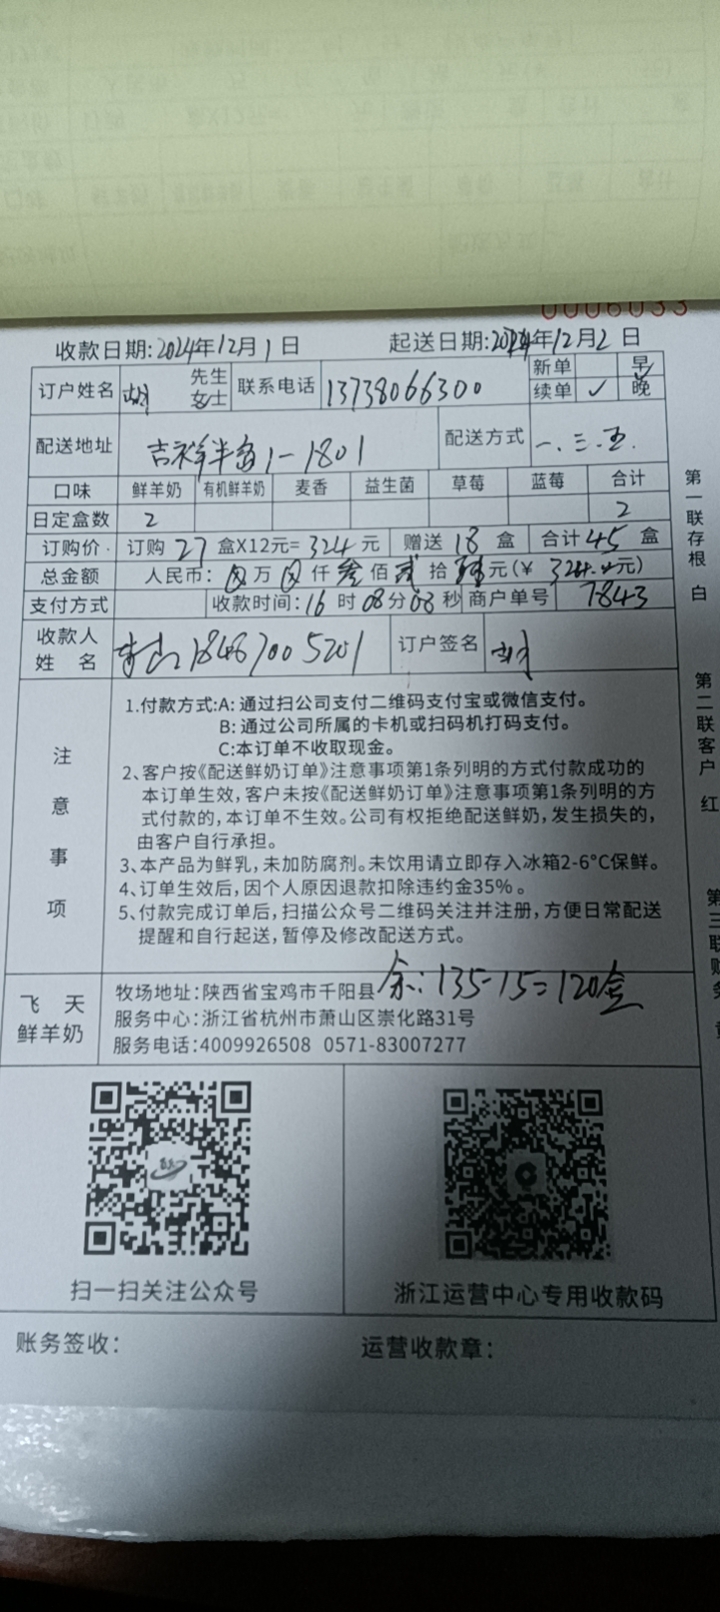 0006033
收款日期:2024年12月1日 起送日期:2024年12月2日
订户姓名 胡 先生 女士 联系电话 13738066300 新单 早 ✓
续单 ✓ 晚
配送地址 吉祥半岛1-1801 配送方式 一.三.五.
口味 鲜羊奶 有机鲜羊奶 麦香 益生菌 草莓 蓝莓 合计
日定盒数 2 2
订购价 订购 27 盒X12元= 324 元 赠送 18 盒 合计 45 盒
总金额 人民币: 万 仟 叁 佰 贰 拾 肆 元(¥ 324.00元)
支付方式 收款时间:16时08分08秒 商户单号 7843
收款人 姓 名 18467005201 订户签名 胡
注意事项
1.付款方式:A: 通过扫公司支付二维码支付宝或微信支付。
B: 通过公司所属的卡机或扫码机打码支付。
C:本订单不收取现金。
2、客户按《配送鲜奶订单》注意事项第1条列明的方式付款成功的
本订单生效,客户未按《配送鲜奶订单》注意事项第1条列明的方
式付款的,本订单不生效。公司有权拒绝配送鲜奶,发生损失的,
由客户自行承担。
3、本产品为鲜乳,未加防腐剂。未饮用请立即存入冰箱2-6°C保鲜。
4、订单生效后,因个人原因退款扣除违约金35%。
5、付款完成订单后,扫描公众号二维码关注并注册,方便日常配送
提醒和自行起送,暂停及修改配送方式。
余:135-15=120盒
飞 天
鲜羊奶
牧场地址:陕西省宝鸡市千阳县
服务中心:浙江省杭州市萧山区崇化路31号
服务电话:4009926508 0571-83007277
扫一扫关注公众号 浙江运营中心专用收款码
账务签收: 运营收款章:
第一联存根 白
第二联客户 红
第三联账务